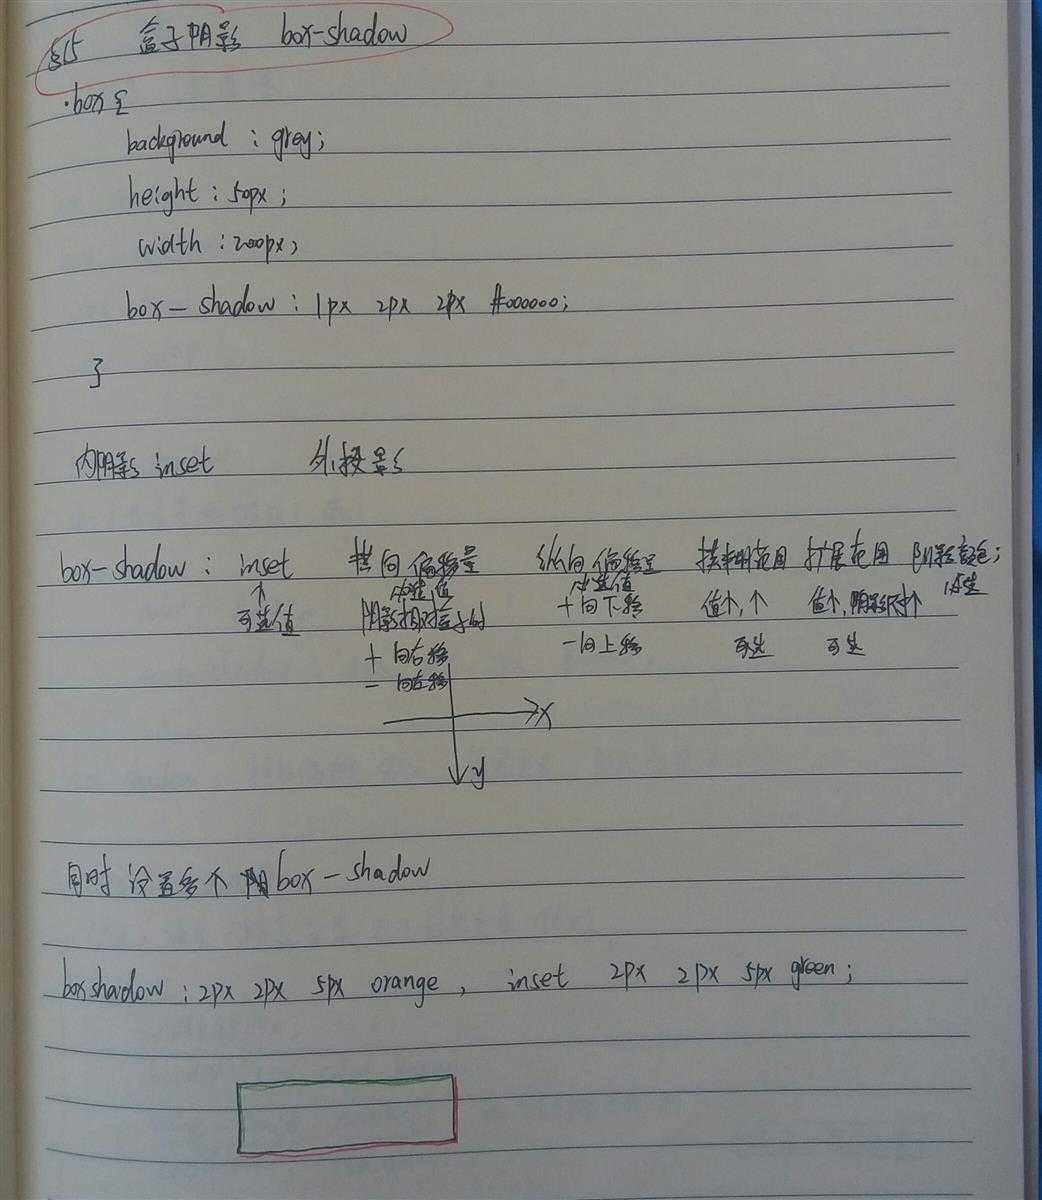 §15 盒子阴影 box-shadow
.box{
background : grey;
height : 50px;
width : 200px;
box-shadow : 1px 2px 2px #000000;
}
内阴影 inset 外投影
box-shadow : inset 横向偏移量 纵向偏移量 范围 扩展范围 阴影颜色;
↑ 必选值 必选值 必选
可选值 阴影相对盒子的 +向下移 值个,个 值个,阴影尺寸个
+ 向右移 -向上移 可选 可选
- 向左移
x
y
同时设置多个 阴 box-shadow
boxshadow : 2px 2px 5px orange, inset 2px 2px 5px green;